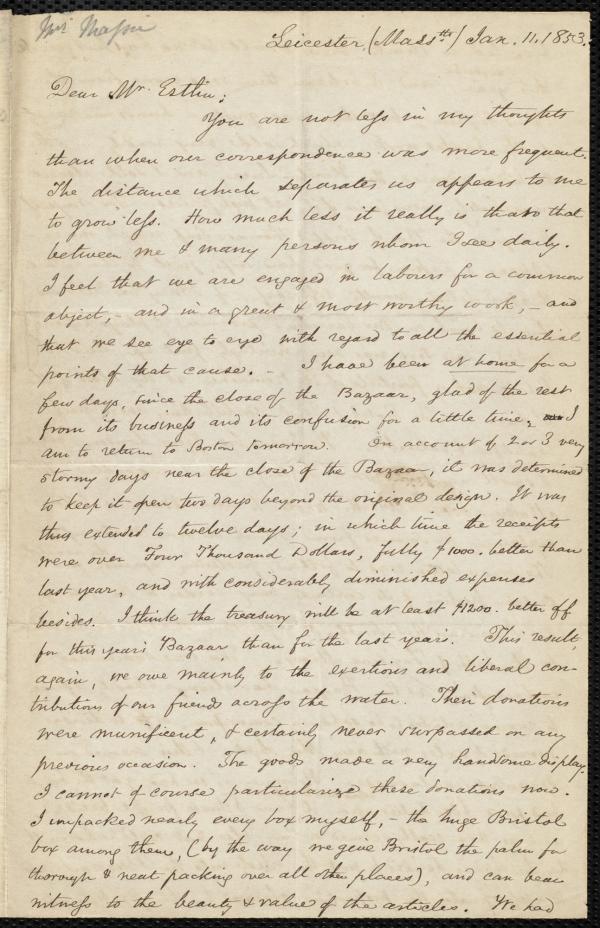 Leicester, (Massts.) Jan. 11, 1853.
Dear Mr. Estlin;
You are not less in my thoughts
than when our correspondence was more frequent.
The distance which separates us appears to me
to grow less. How much less it really is than that
between me & many persons whom I see daily.
I feel that we are engaged in labours for a common
object, - and in a great & most worthy work, - and
that we see eye to eye with regard to all the essential
points of that cause. - I have been at home for a
few days, since the close of the Bazaar, glad of the rest
from its business and its confusion for a little time, I
am to return to Boston tomorrow. On account of 2 or 3 very
stormy days near the close of the Bazaar, it was determined
to keep it open two days beyond the original design. It was
thus extended to twelve days; in which time the receipts
were over Four Thousand Dollars, fully $1000. better than
last year, and with considerably diminished expenses
besides. I think the treasury will be at least $1200. better off
for this year's Bazaar than for the last year's. This result,
again, we owe mainly to the exertions and liberal con-
tributions of our friends across the water. Their donations
were munificent, & certainly never surpassed on any
previous occasion. The goods made a very handsome display.
I cannot of course particularize these donations now.
I unpacked nearly every box myself, - the huge Bristol
box among them, (by the way we give Bristol the palm for
thorough & neat packing over all other places), and can bear
witness to the beauty & value of the articles. We had